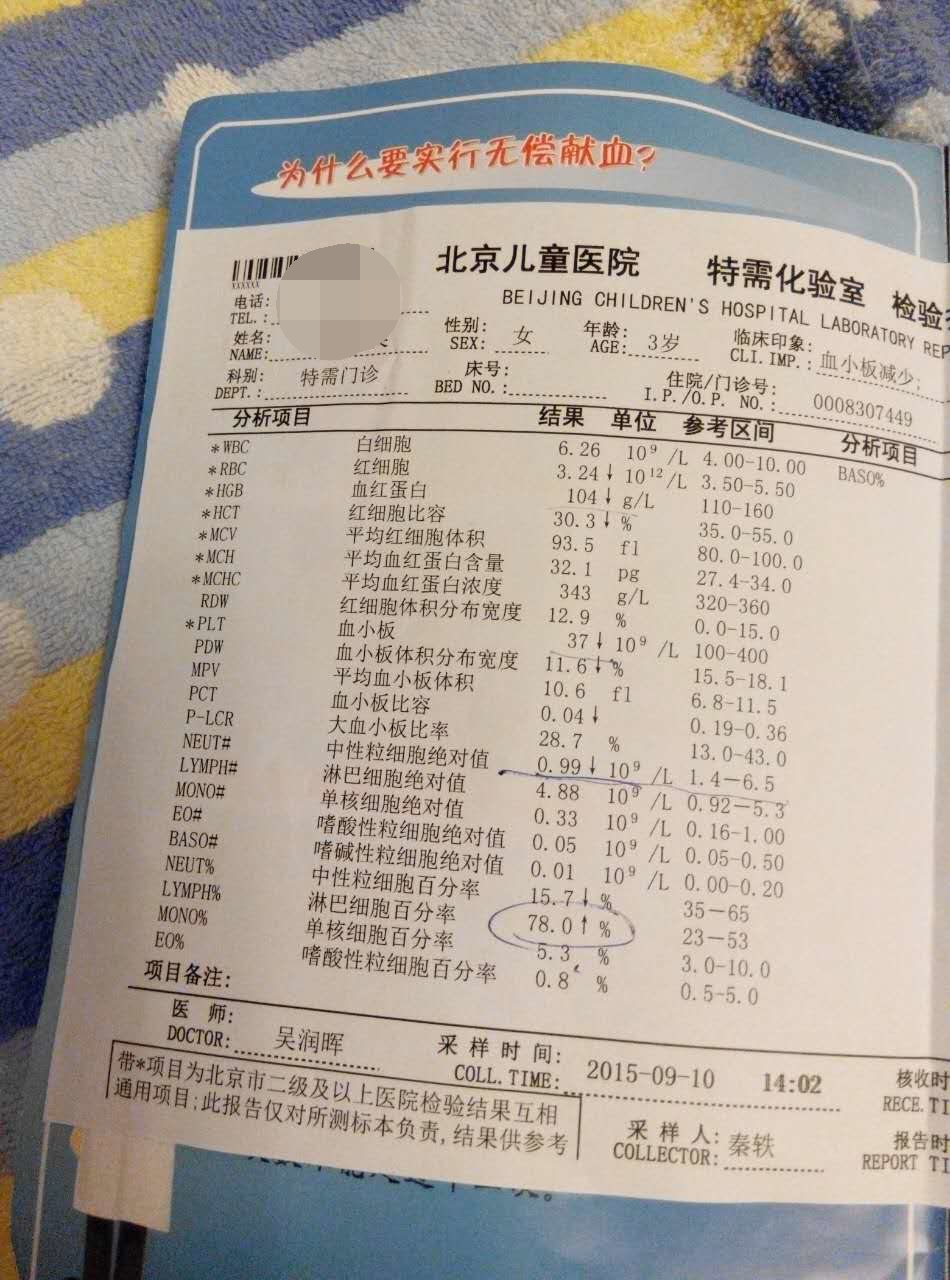 为什么要实行无偿献血?
北京儿童医院 特需化验室 检验
BEIJING CHILDREN'S HOSPITAL LABORATORY REP
XXXXXX
电话:
TEL.:
姓名: 性别: 女 年龄: 3岁 临床印象: 血小板减少;
NAME: SEX: AGE: CLI.IMP.:
科别: 特需门诊 床号: 住院/门诊号: 0008307449
DEPT.: BED NO.: I.P./O.P. NO.:
分析项目 结果 单位 参考区间 分析项目
*WBC 白细胞 6.26 10⁹ /L 4.00-10.00 BASO%
*RBC 红细胞 3.24↓ 10¹² /L 3.50-5.50
*HGB 血红蛋白 104↓ g/L 110-160
*HCT 红细胞比容 30.3↓ % 35.0-55.0
*MCV 平均红细胞体积 93.5 fl 80.0-100.0
*MCH 平均血红蛋白含量 32.1 pg 27.4-34.0
*MCHC 平均血红蛋白浓度 343 g/L 320-360
RDW 红细胞体积分布宽度 12.9 % 0.0-15.0
*PLT 血小板 37↓ 10⁹ /L 100-400
PDW 血小板体积分布宽度 11.6↓ % 15.5-18.1
MPV 平均血小板体积 10.6 fl 6.8-11.5
PCT 血小板比容 0.04↓ 0.19-0.36
P-LCR 大血小板比率 28.7 % 13.0-43.0
NEUT# 中性粒细胞绝对值 0.99↓ 10⁹ /L 1.4-6.5
LYMPH# 淋巴细胞绝对值 4.88 10⁹ /L 0.92-5.3
MONO# 单核细胞绝对值 0.33 10⁹ /L 0.16-1.00
EO# 嗜酸性粒细胞绝对值 0.05 10⁹ /L 0.05-0.50
BASO# 嗜碱性粒细胞绝对值 0.01 10⁹ /L 0.00-0.20
NEUT% 中性粒细胞百分率 15.7↓ % 35-65
LYMPH% 淋巴细胞百分率 78.0↑ % 23-53
MONO% 单核细胞百分率 5.3 % 3.0-10.0
EO% 嗜酸性粒细胞百分率 0.8 % 0.5-5.0
项目备注:
医 师: 吴润晖 采 样 时 间: 2015-09-10 14:02 核收时
DOCTOR: COLL.TIME: RECE.TI
带*项目为北京市二级及以上医院检验结果互相
通用项目;此报告仅对所测标本负责,结果供参考
采 样 人: 秦轶 报告时
COLLECTOR: REPORT TI